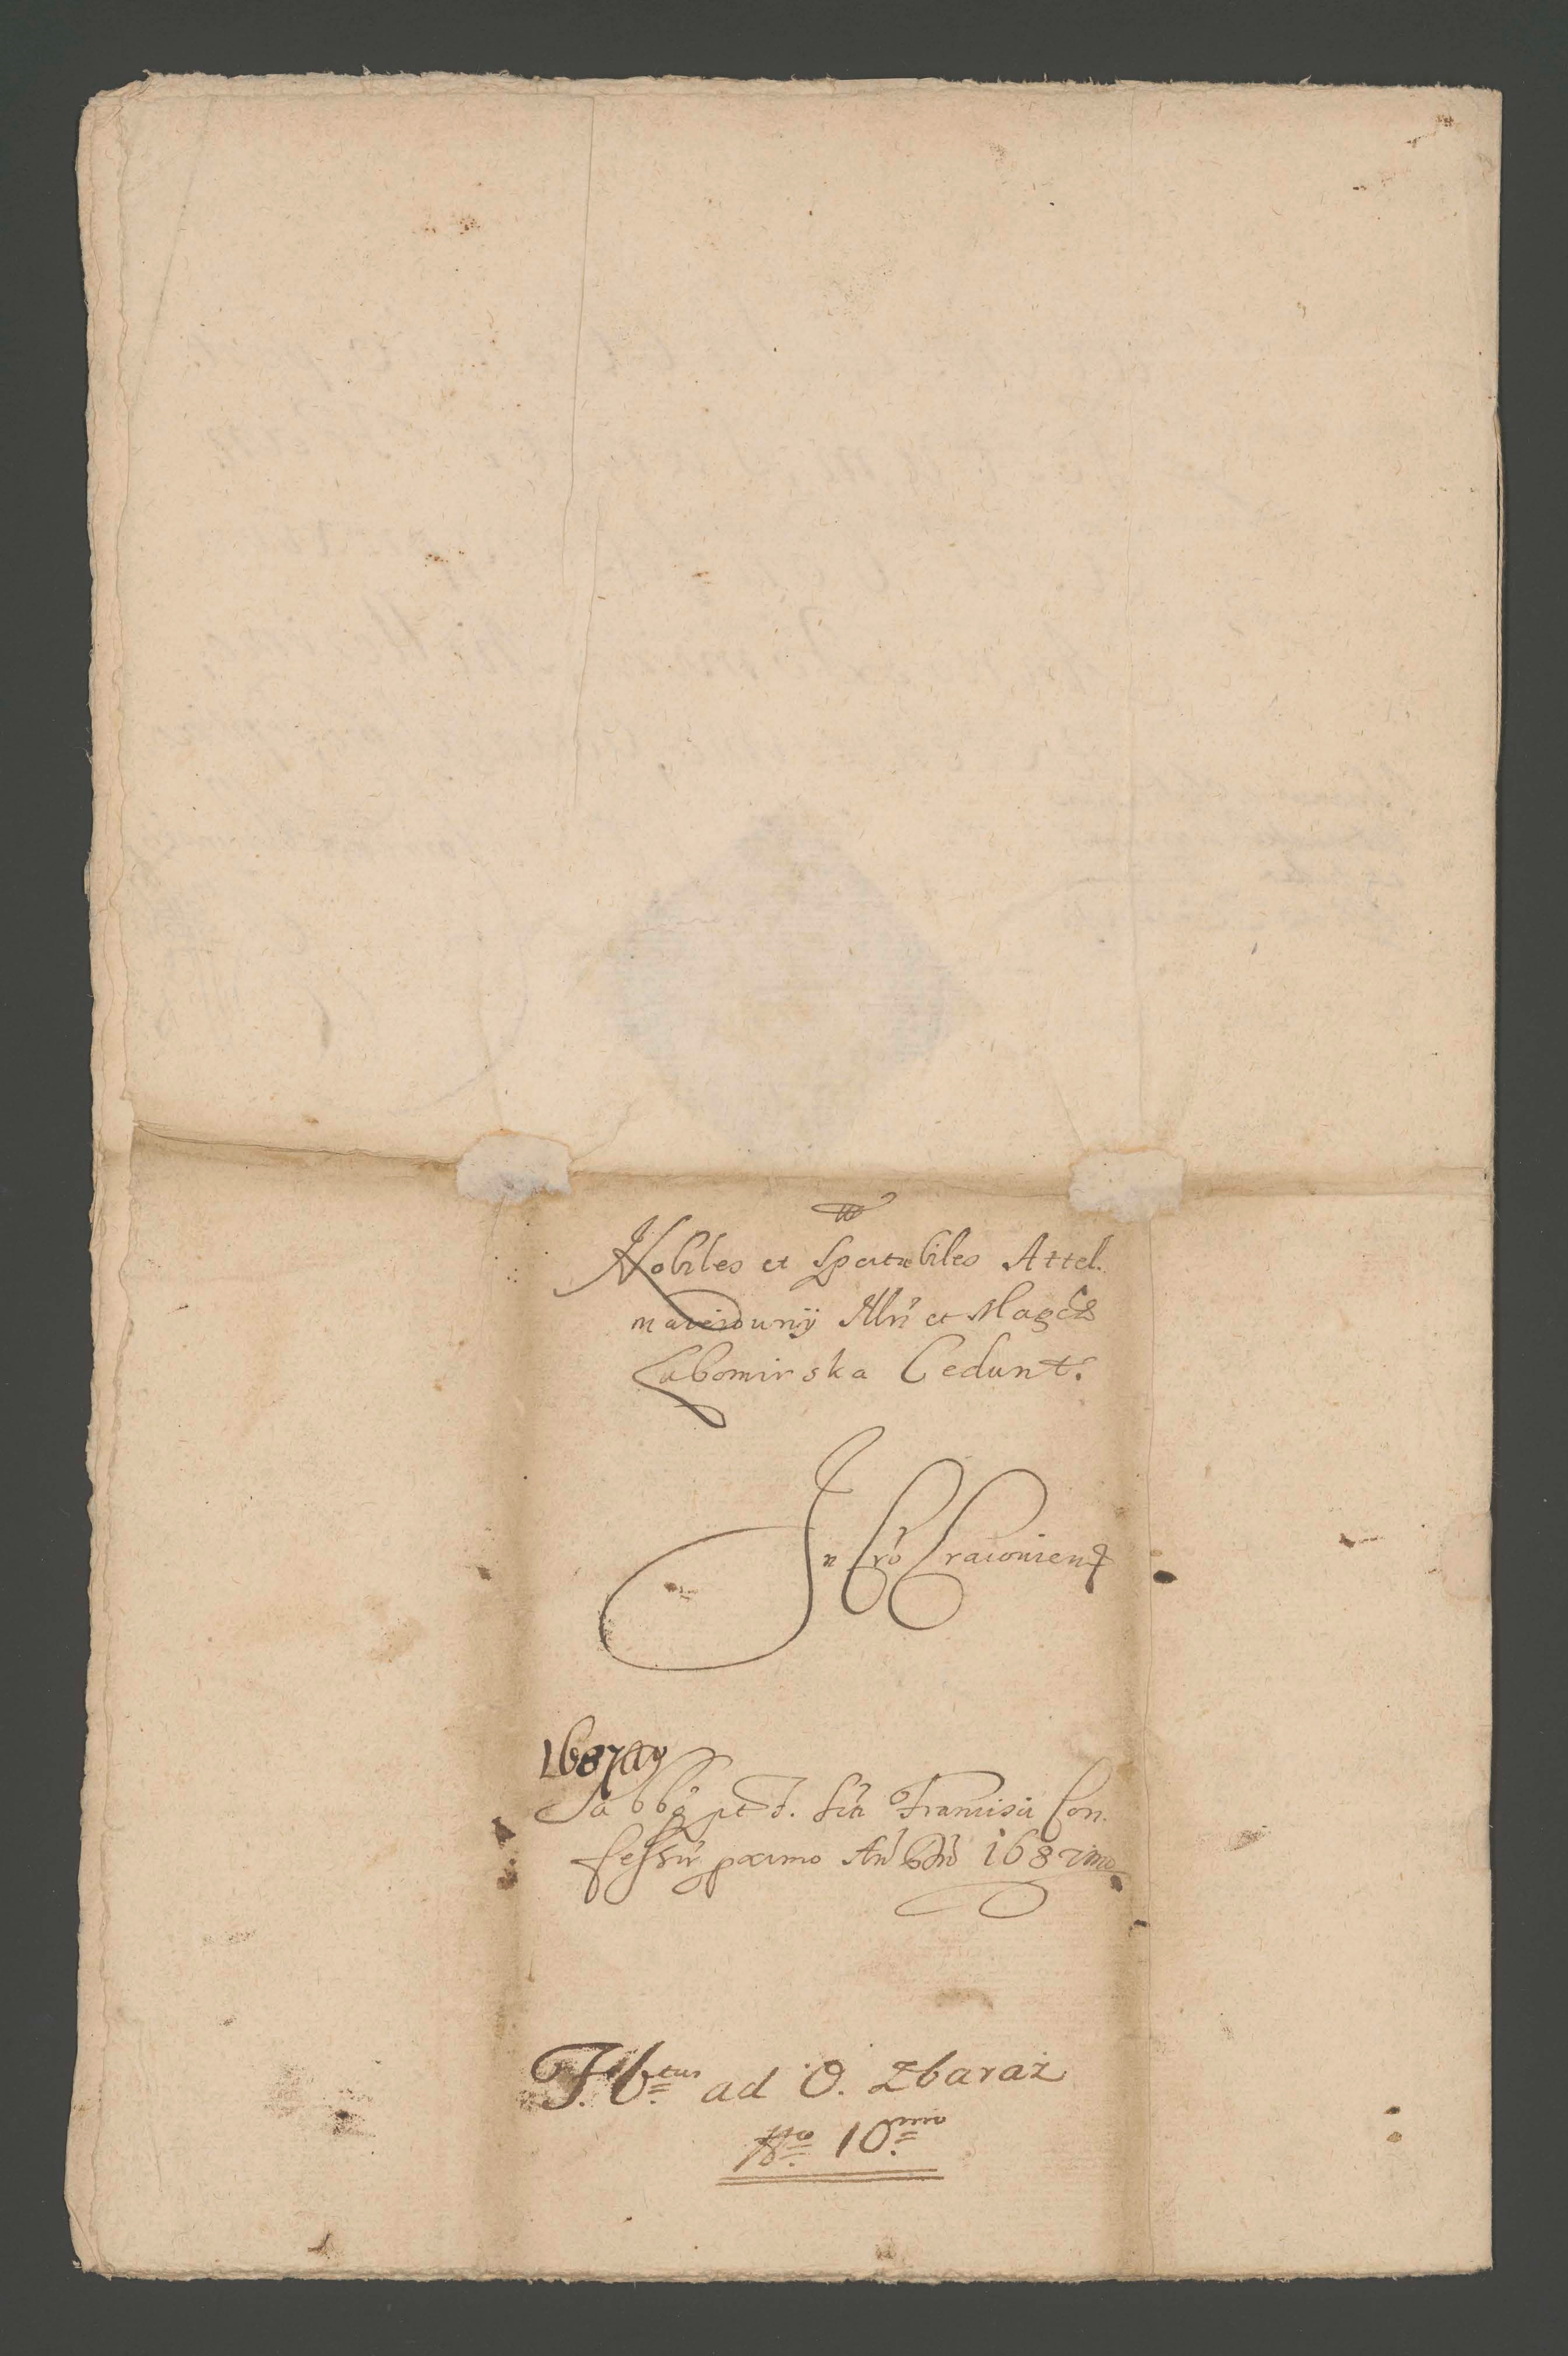 Nobiles et Spectabiles Attel.
maierowny Illri et Magcae
Lubomirska Cedunt.
In Cro Cracoviens
1687
Sabbo pt F. Scti Francisci Con.
fessoris proximo Ano Dni 1687mo
ad O. Zbaraż
No. 10mo